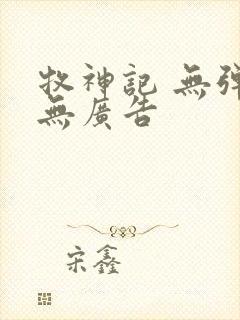 牧神記 無彈
無廣告
宋鑫